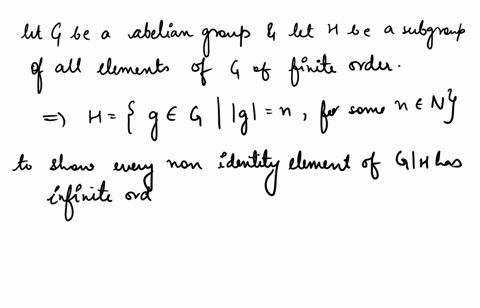 let G be a abelian group & let H be a subgroup
of all elements of G of finite order.
=> H = { g ∈ G | |g| = n, for some n ∈ N }
to show every non identity element of G|H has
infinite ord